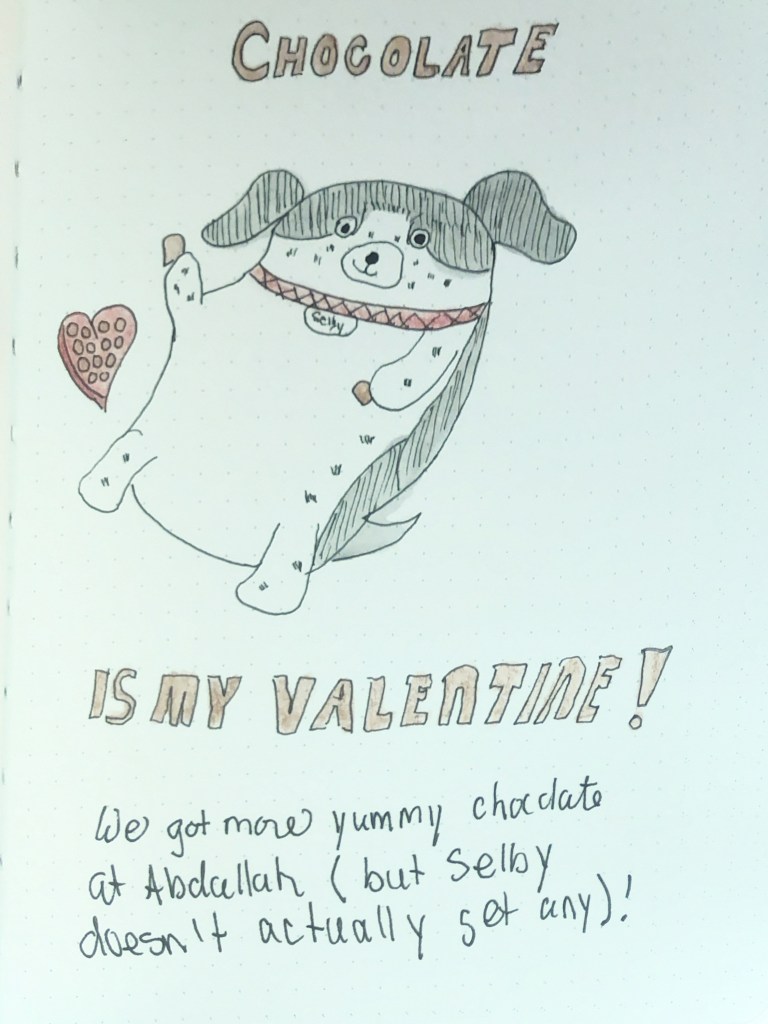 CHOCOLATE
Selby
IS MY VALENTINE!
We got more yummy choclate
at Abdallah (but Selby
doesn't actually get any)!